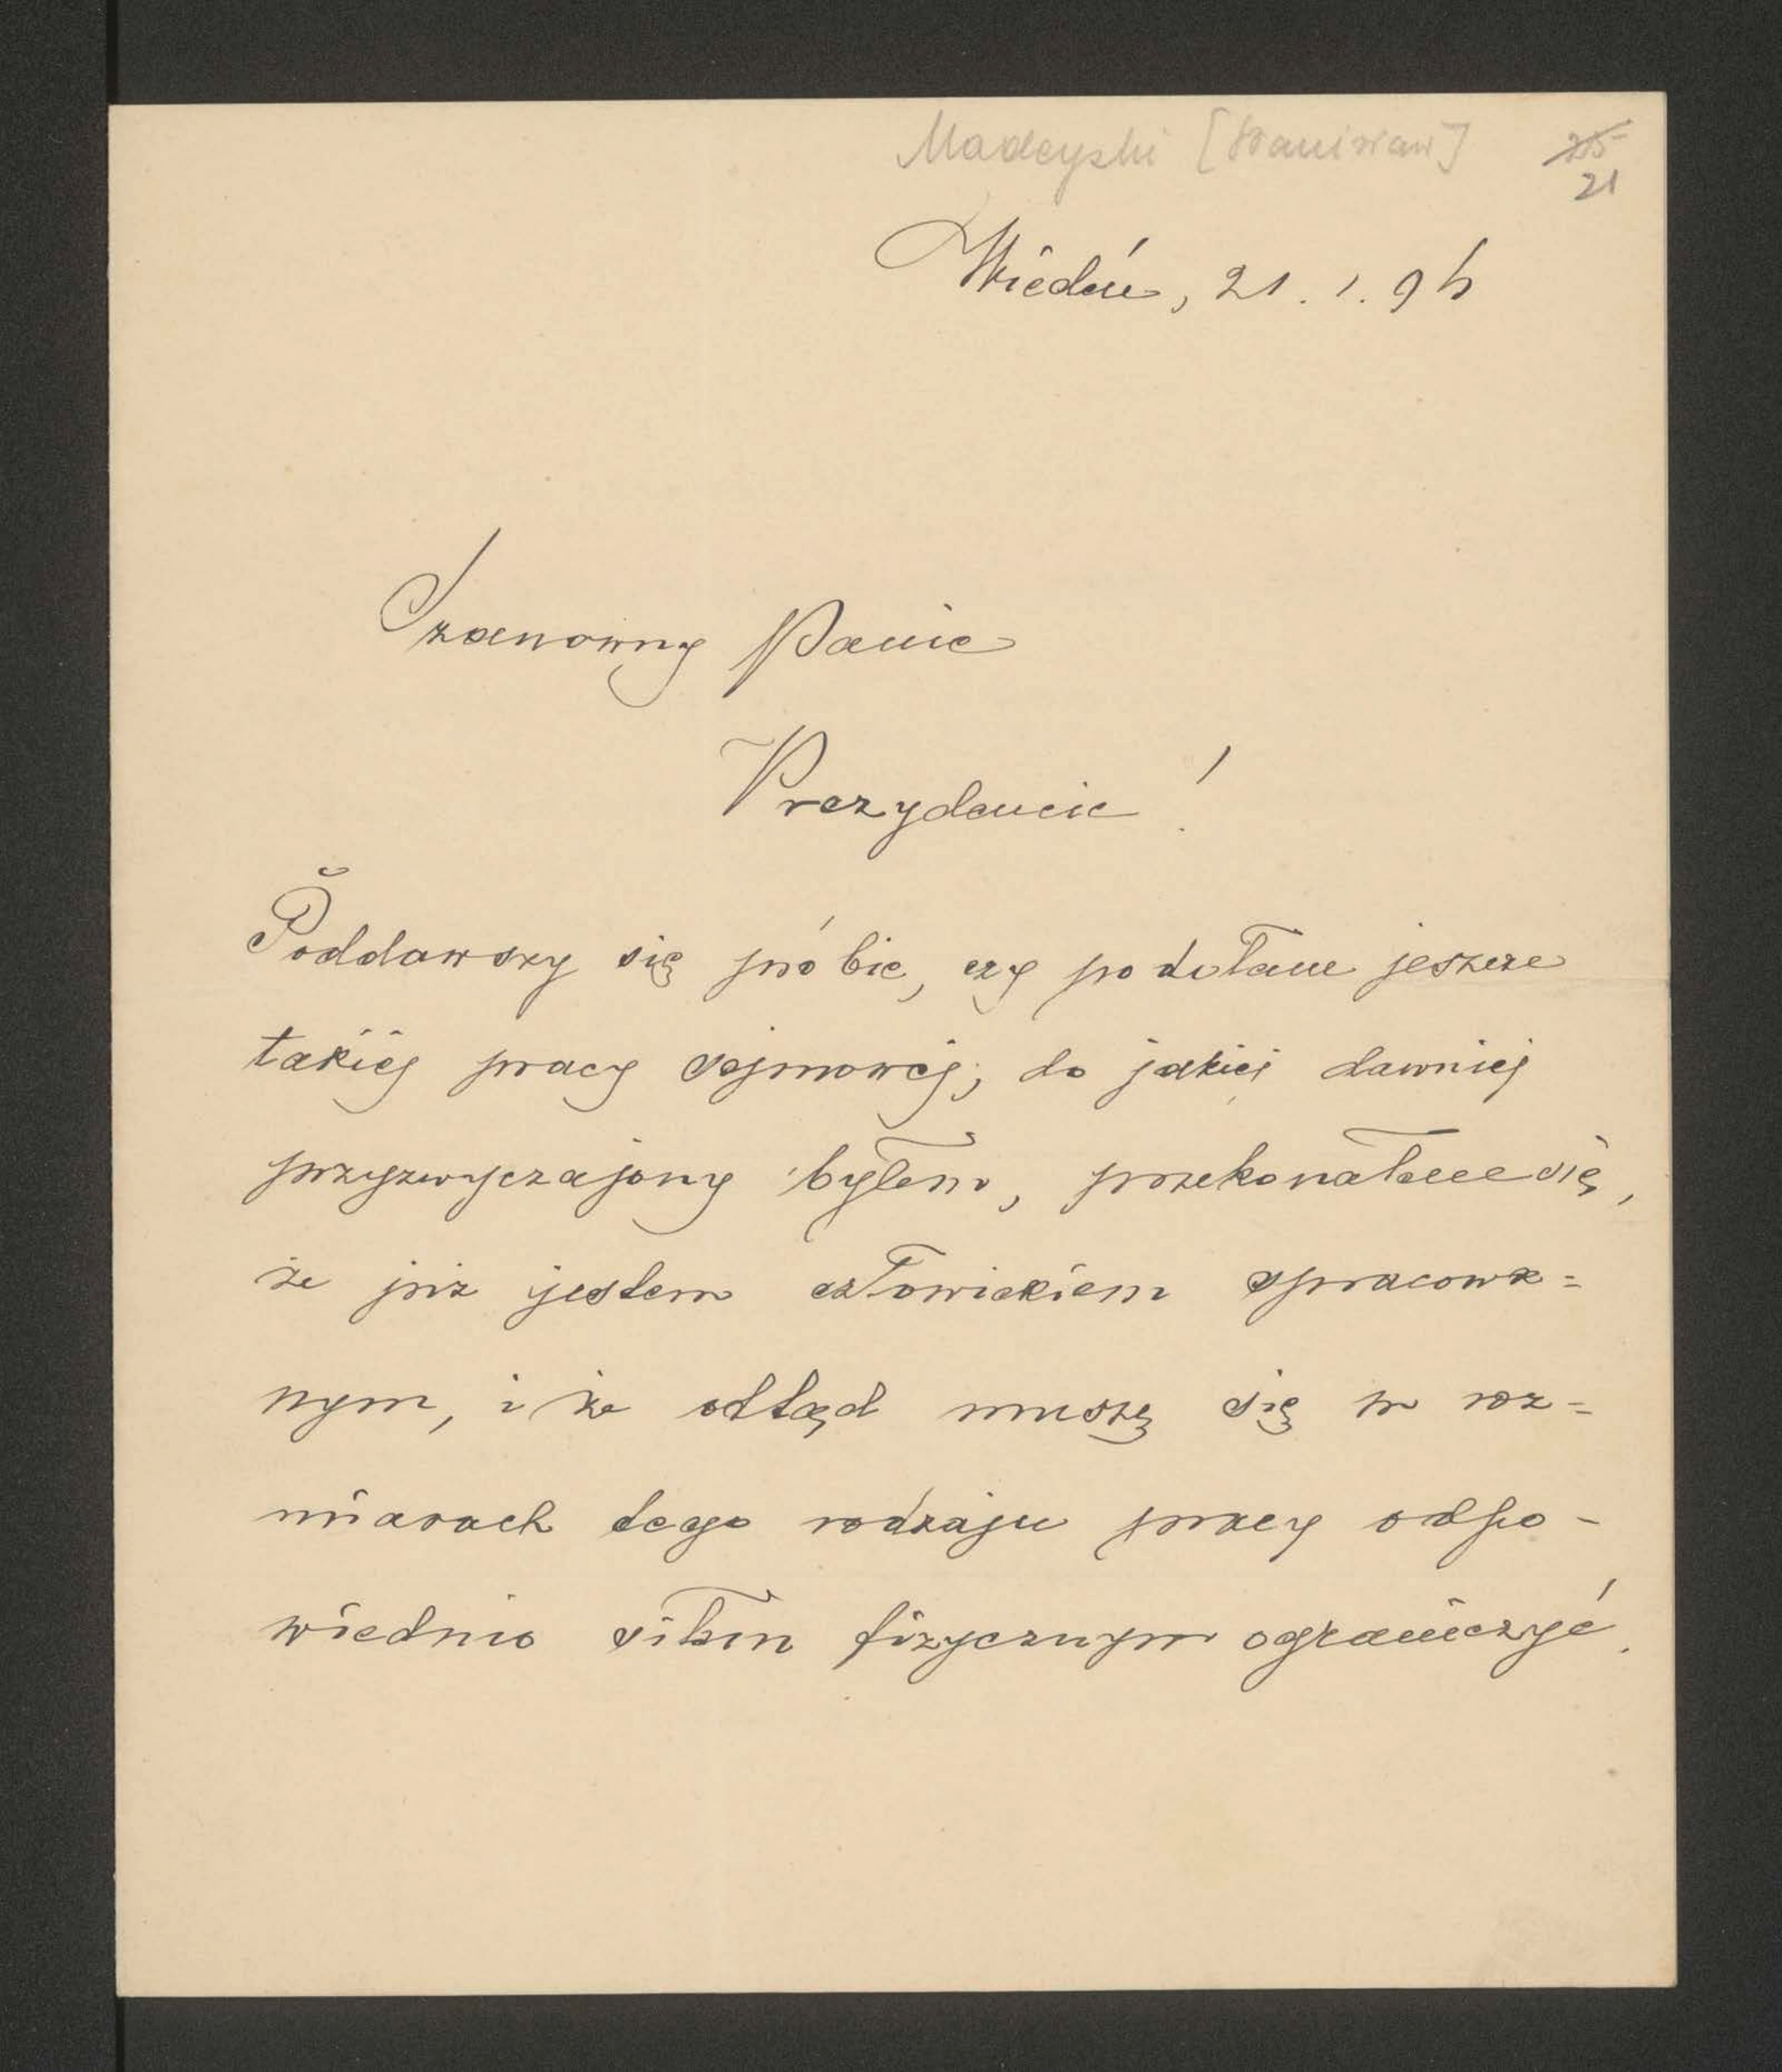 Madeyski [Stanisław]
21
Wiedeń, 21. 1. 96
Szanowny Panie
Prezydencie!
Poddawszy się próbie, czy podołam jeszcze
takiéj pracy sejmowéj, do jakiéj dawniéj
przyzwyczajony byłem, przekonałem się,
że już jestem człowiekiem spracowa=
nym, i że odtąd muszę się w roz=
miarach tego rodzaju pracy odpo-
wiednio siłom fizycznym ograniczyć.